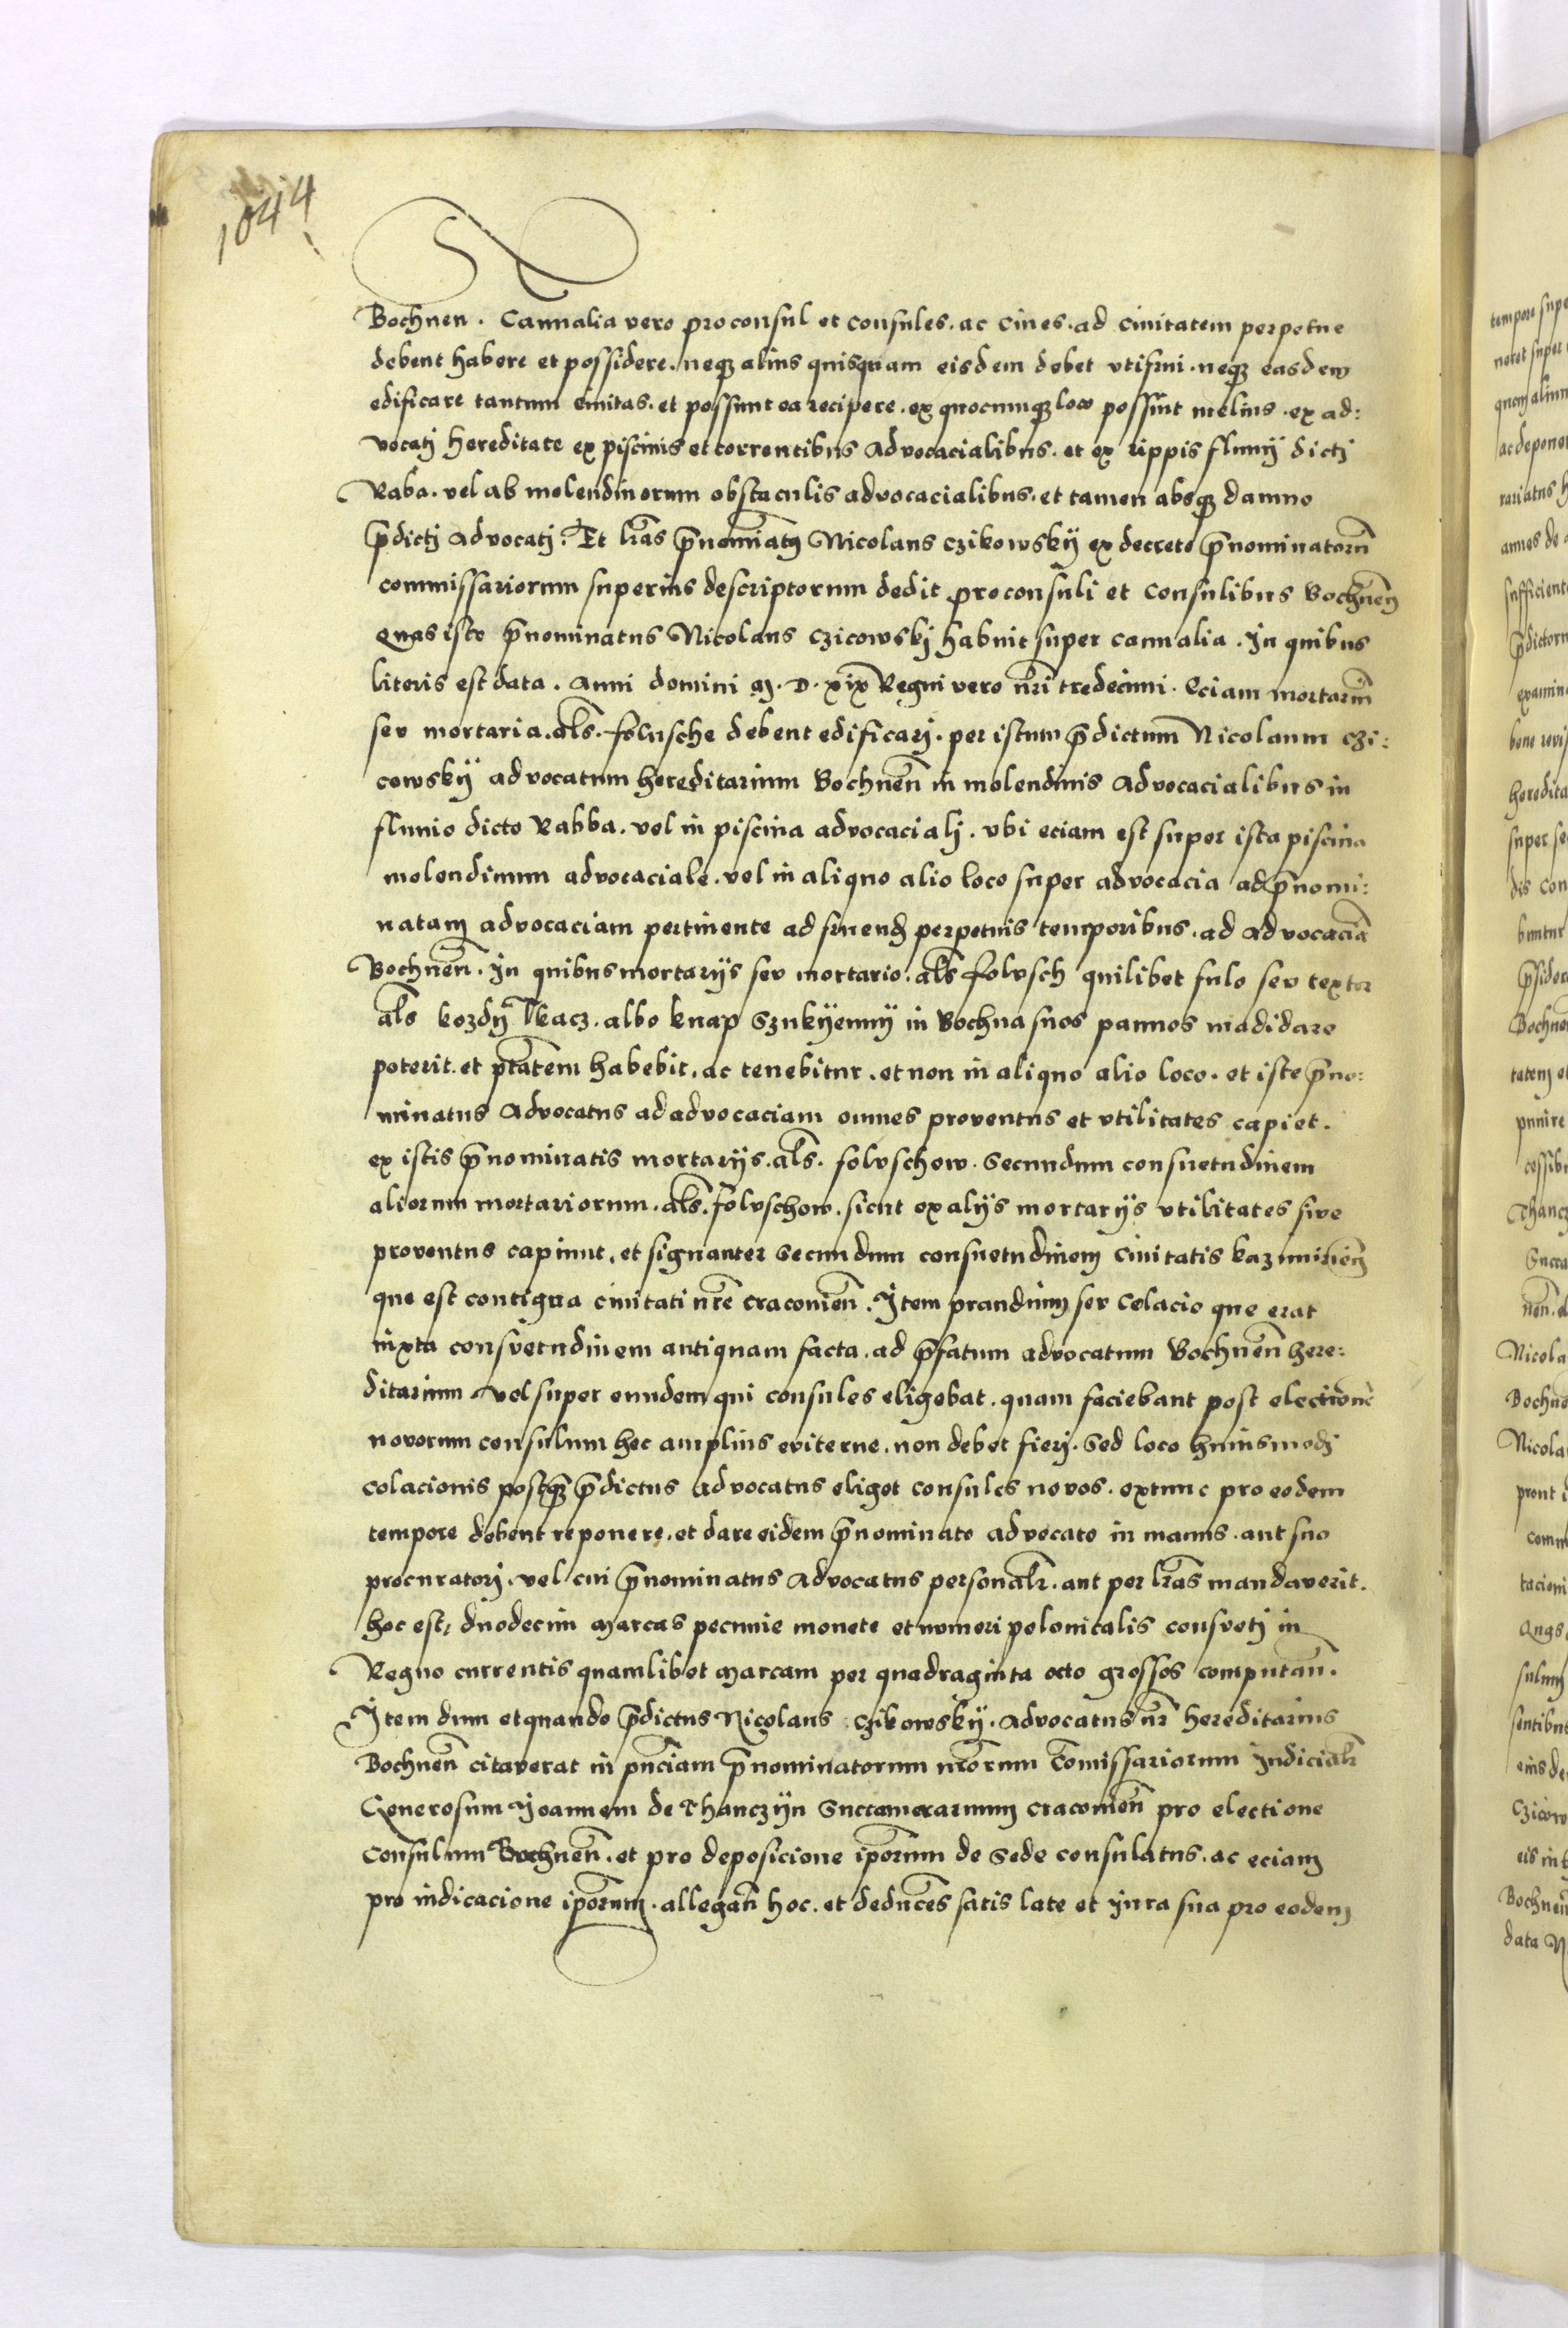 1044
Bochnen. Cannalia vero proconsul et consules. ac cives. ad civitatem perpetue
debent habere et possidere. neqȝ alius quisquam eisdem debet utifrui. neqȝ easdem
edificare tantum civitas. et possunt ea recipere. ex quocumqȝ loco possint melius. ex ad:
vocatj hereditate ex piscinis et torrentibus advocacialibus. et ex rippis fluvij dictj
Raba. vel ab molendinorum obstaculis advocacialibus. et tamen absqȝ damno
p̄dictj advocatj. Et lr̄as p̄nomiatꝰ Nicolaus Czikowskÿ ex decreto p̄nominatorū
commissariorum superius descriptorum dedit proconsuli et consulibus Bochnen̄
Quas iste p̄nominatus Nicolaus Czicowskj habuit super cannalia. In quibus
literis est data. Anni domini M. D. xix Regni vero nr̄i tredecimi. Eciam mortariū
seu mortaria. als̄. folusche debent edificarj. per istum p̄dictum Nicolaum Czi:
cowskÿ advocatum hereditarium Bochnen̄ in molendinis advocacialibus in
fluvio dicto Rabba. vel in piscina advocacialj. vbi eciam est super ista piscina
molendinum advocaciale. vel in aliquo alio loco super advocacia ad p̄nomi:
natam advocaciam pertinente ad fruend̄ perpetuis temporibus. ad advocaciā
Bochnen̄. In quibus mortarijs seu mortario. als̄ folusch quilibet fulo seu textor
als̄ kozdÿ tkacz. albo knap Sznkÿennÿ in Bochna suos pannos madidare
poterit. et ptātem habebit. ac tenebitur. et non in aliquo alio loco. et iste p̄no:
minatus advocatus ad advocaciam omnes proventus et vtilitates capiet.
ex istis p̄nominatis mortarijs. als̄. foluschow. Secundum consuetudinem
aliorum mortariorum. als̄. foluschow. sicut ex alijs mortarijs vtilitates sive
proventus capiunt, et signanter Secundum consuetudinem Civitatis kazimirien̄
que est contigua civitati nr̄e Cracovien̄. Item prandium seu Colacio que erat
iuxta consuetudinem antiquam facta. ad p̄fatum advocatum Bochnen̄ here:
ditarium vel super eundem qui consules eligebat. quam faciebant post electionē
novorum consulum hec amplius eviterne. non debet fierj. Sed loco huiusmodj
colacionis postqȝ p̄dictus advocatus eliget consules novos. extunc pro eodem
tempore debent reponere. et dare eidem p̄nominato advocato in manus. aut suo
procuratorj. vel cui p̄nominatus advocatus personalr̄. aut per lr̄as mandaverit.
hoc est, duodecim marcas pecunie monete et numeri polonicalis consuetj in
Regno currentis quamlibet marcam per quadraginta octo grossos computan̄.
Item dum et quando p̄dictus Nicolaus Czikowskÿ. Advocatus nr̄ hereditarius
Bochnen̄ citaverat in pn̄ciam p̄nominatorum nr̄orum Comissariorum Iudicialr̄
Generosum Ioannem de Thanczÿn Succamerarium Cracovien̄ pro electione
consulum Bochnen̄. et pro deposicione ip̄orum de Sede consulatus. ac eciam
pro iudicacione ip̄orum. allegan̄ hoc. et deducēs satis late et iura sua pro eodem